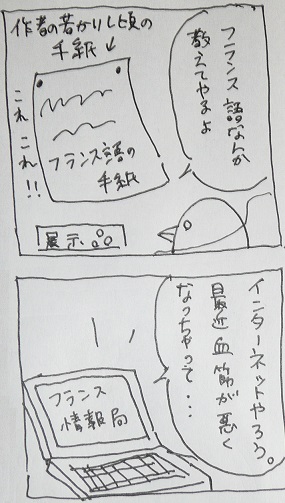 作者の若かりし頃の
手紙↓
フランス語なんか
教えてやるよ
これこれ!!
フランス語の
手紙
展示
インターネットやろう。
最近血筋が悪く
なっちゃって・・・
フランス
情報局